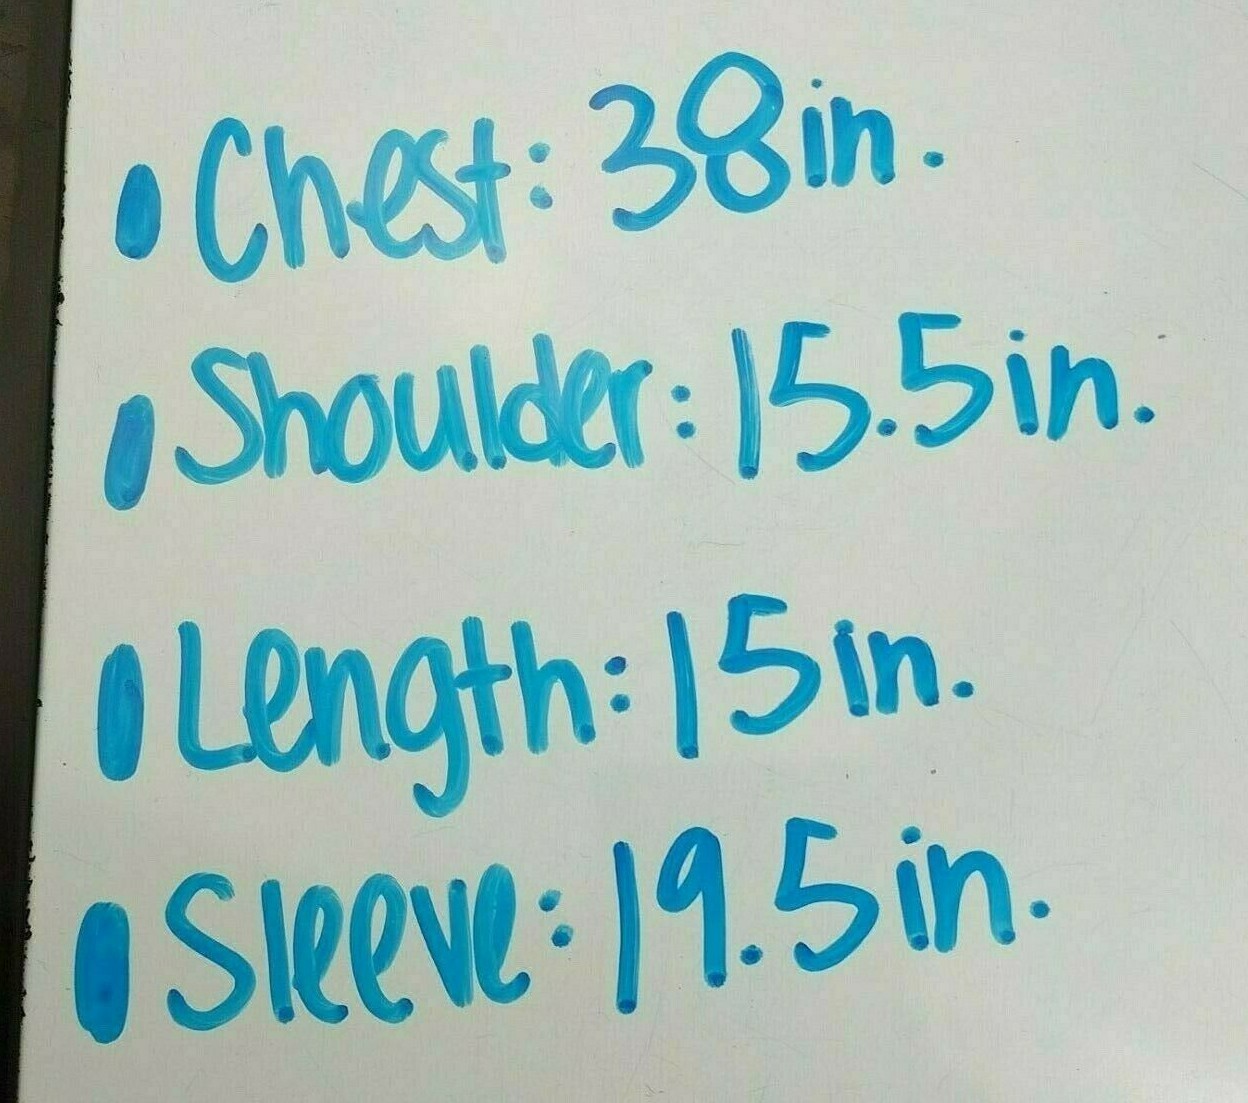 • Chest: 38in.
• Shoulder: 15.5in.
• Length: 15in.
• Sleeve: 19.5in.